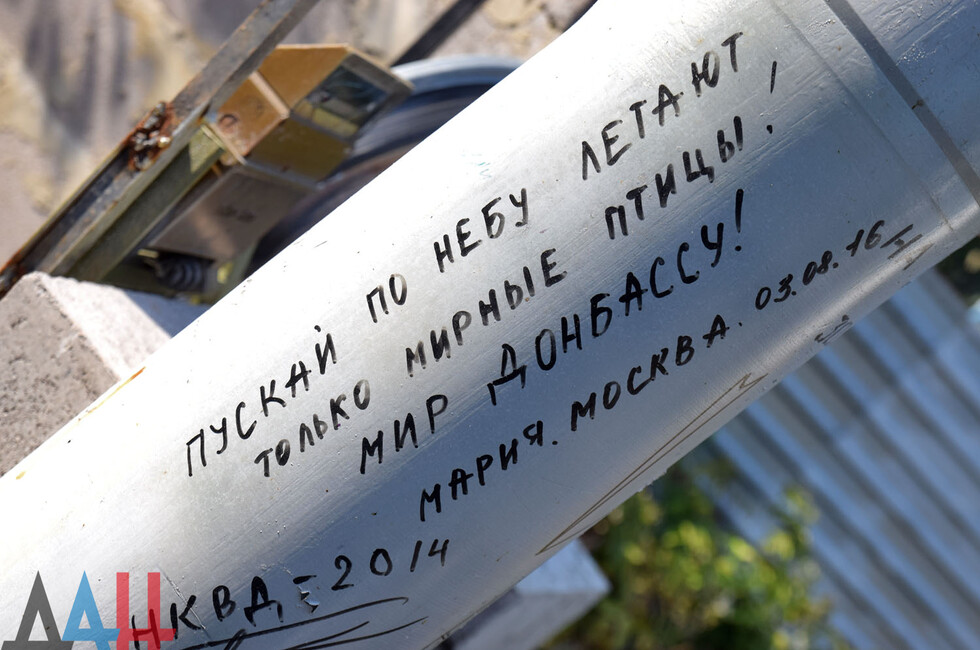 ПУСКАЙ ПО НЕБУ ЛЕТАЮТ
ТОЛЬКО МИРНЫЕ ПТИЦЫ!
МИР ДОНБАССУ!
МАРИЯ. МОСКВА. 03.08.16г
НКВД-2014
ДАН